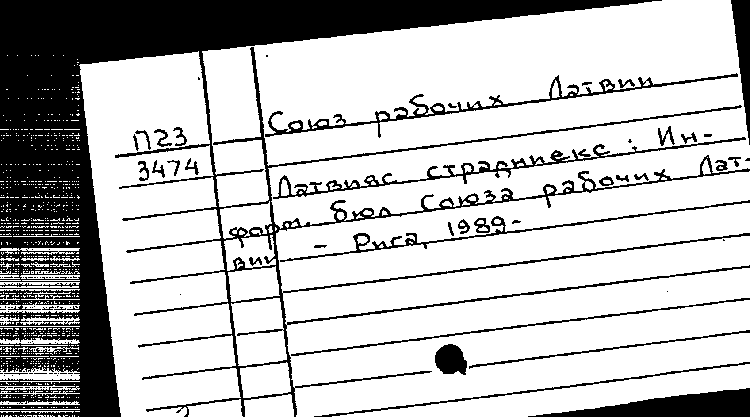 Союз рабочих Латвии
П23
3474
Латвияс страдниекс : Ин-
форм. бюл Союза рабочих Лат-
вии - Рига, 1989-